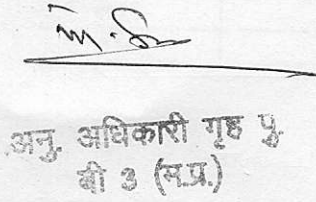 अनु. अधिकारी गृह पु.
बी 3 (स.प्र.)